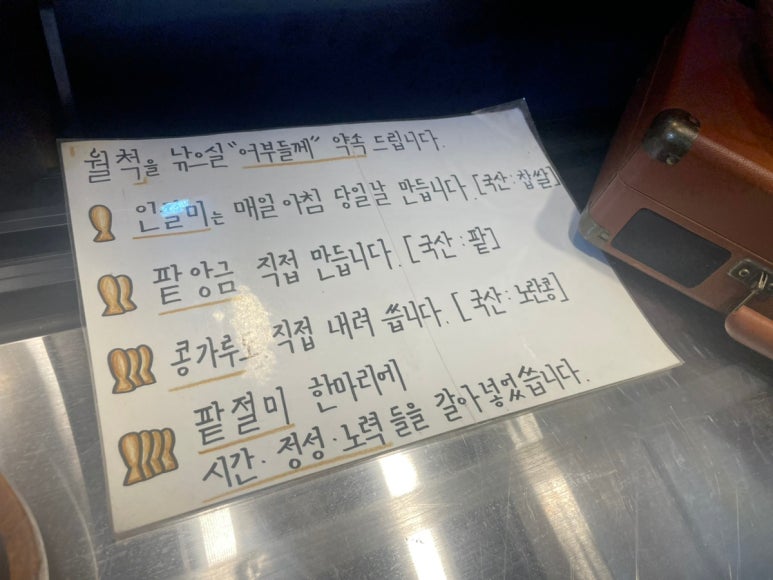 월척을 낚으실 "어부들께" 약속 드립니다.
인절미는 매일 아침 당일날 만듭니다. [국산:찹쌀]
팥앙금 직접 만듭니다. [국산:팥]
콩가루도 직접 내려 씁니다. [국산:노란콩]
팥절미 한마리에
시간·정성·노력들을 갈아넣었씁니다.